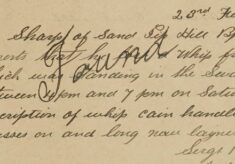 23rd Fe
Sharp of Sand Pit Hill
orts that his Whip
ich was standing in the
tween 4 pm and 7 pm on Satu
cription of whip cain handle
asses on and long
Found
Sergt